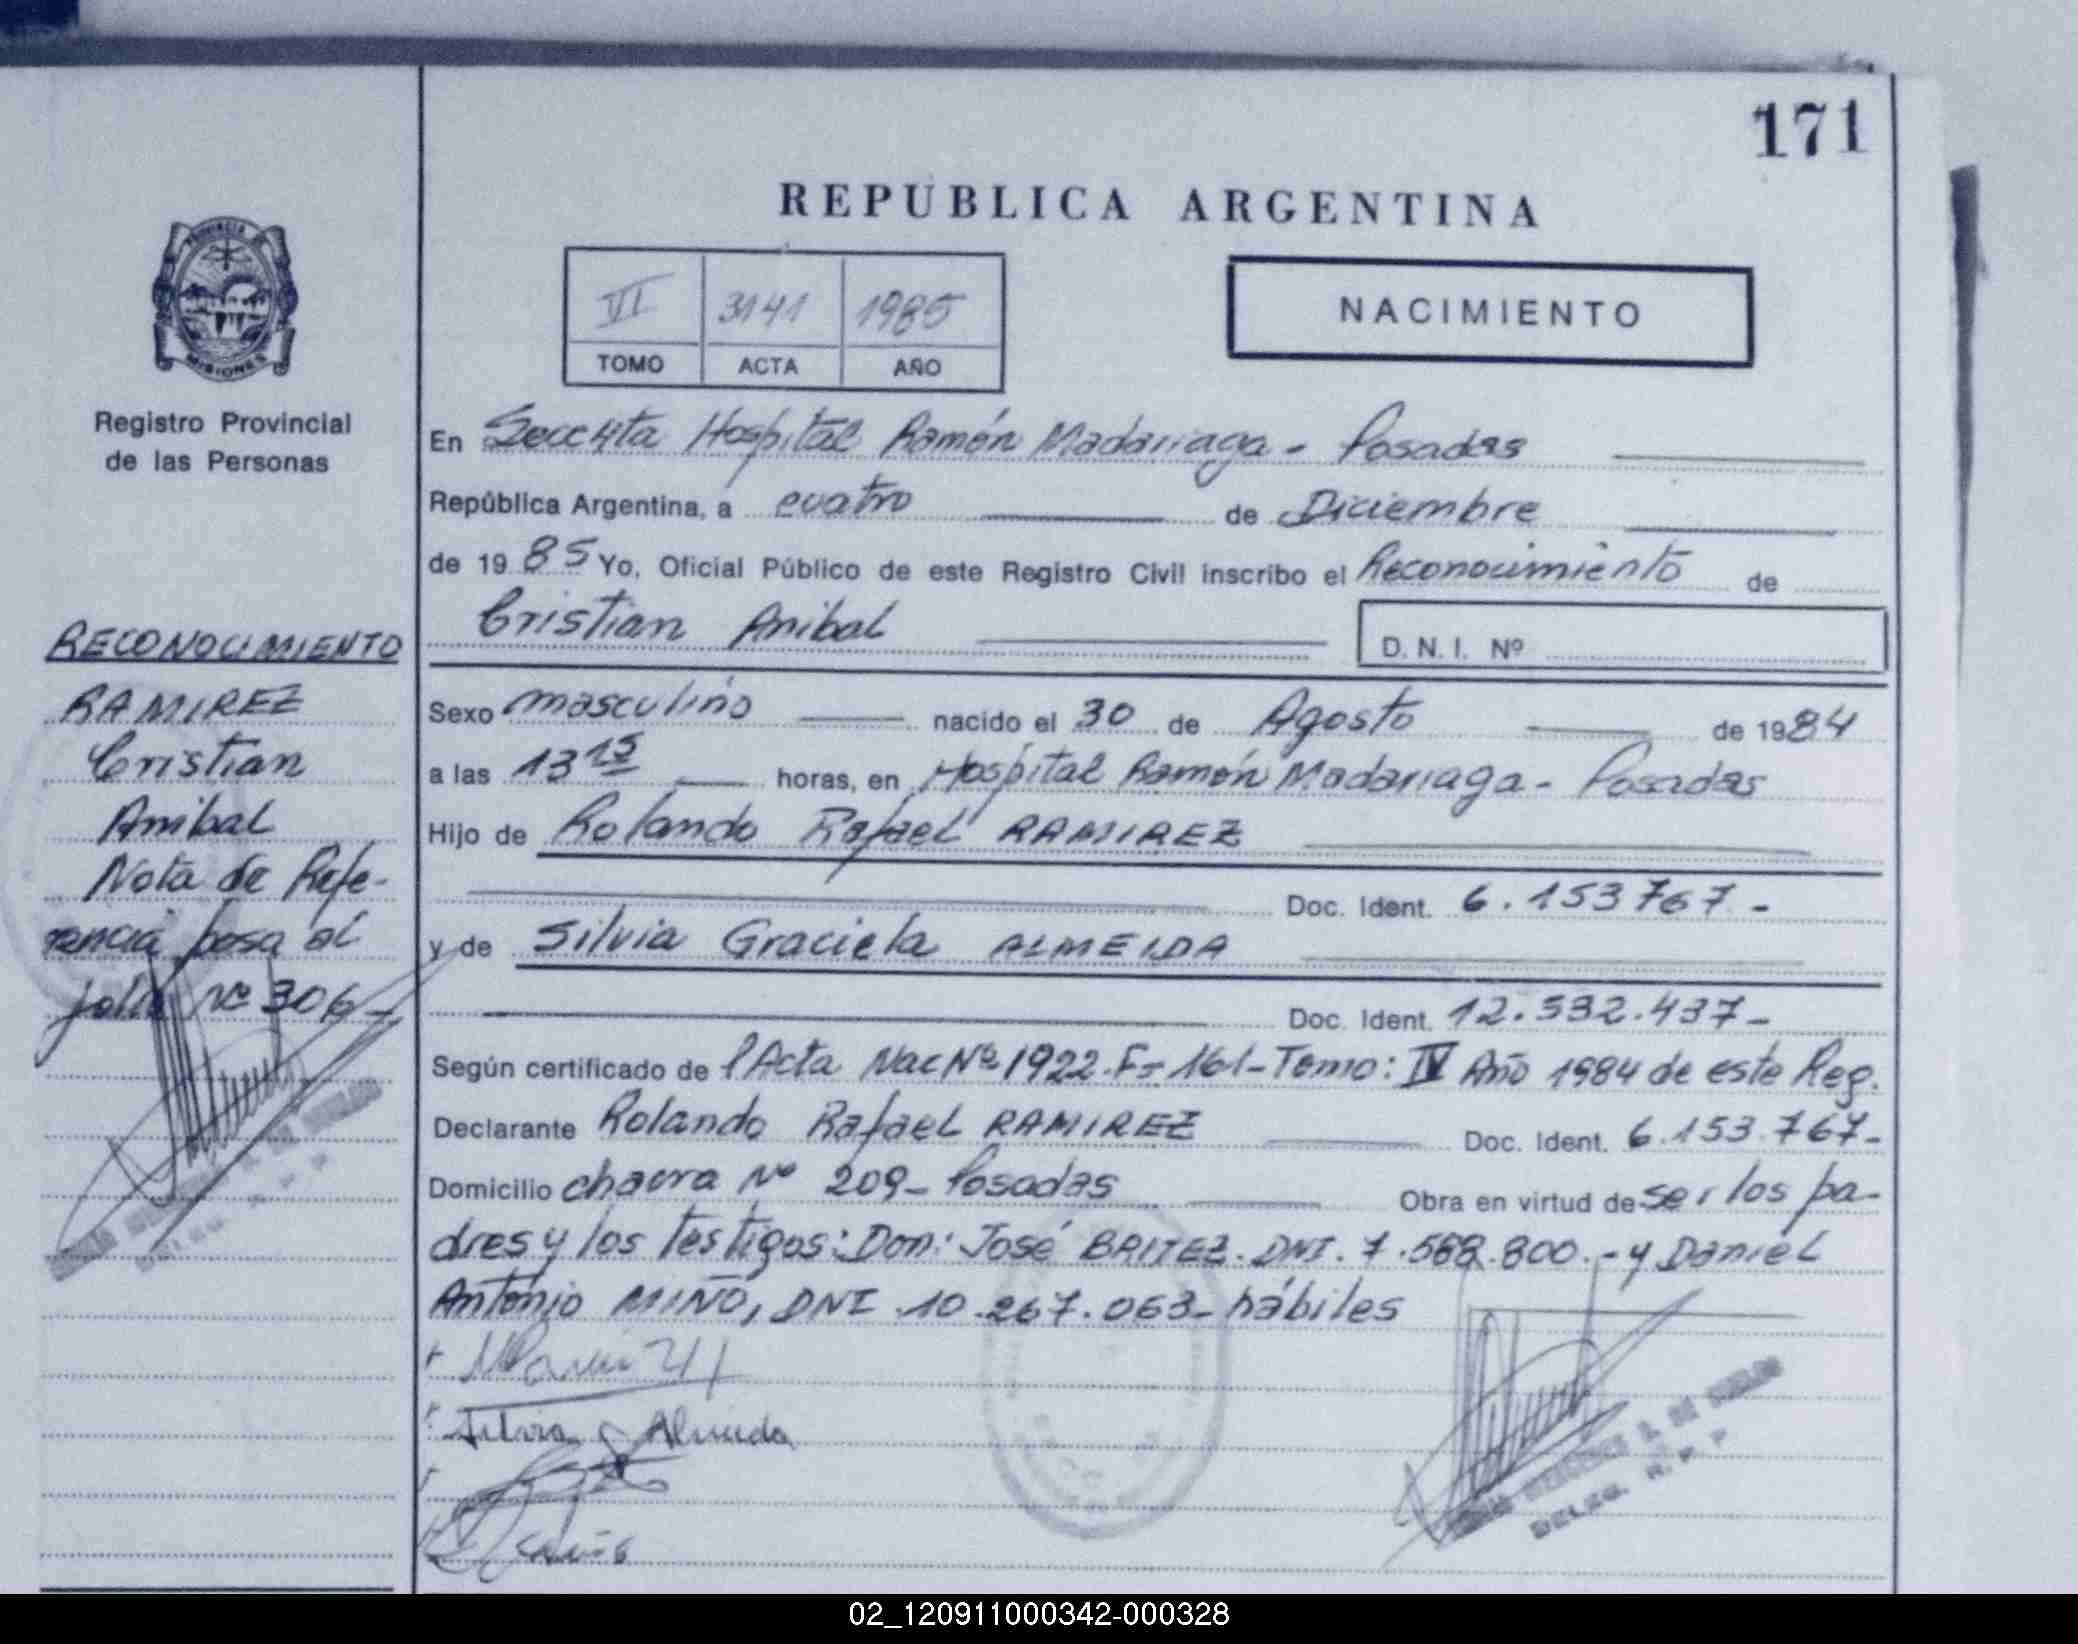 171
REPUBLICA ARGENTINA
PROVINCIA DE
MISIONES
VI 3141 1985
TOMO ACTA AÑO
NACIMIENTO
Registro Provincial
de las Personas
En Secc 4ta Hospital Ramón Madariaga - Posadas
República Argentina, a cuatro de Diciembre
de 1985 Yo, Oficial Público de este Registro Civil inscribo el Reconocimiento de
Cristian Anibal
D. N. I. Nº
RECONOCIMIENTO
RAMIREZ
Cristian
Anibal
Nota de Refe-
rencia pasa al
folio Nº 306-
Sexo masculino nacido el 30 de Agosto de 1984
a las 13 15 horas, en Hospital Ramón Madariaga - Posadas
Hijo de Rolando Rafael RAMIREZ
Doc. Ident. 6.153767-
y de Silvia Graciela ALMEIDA
Doc. Ident. 12.532.437-
Según certificado de Acta Nac Nº 1922 F= 161- Tomo: IV Año 1984 de este Reg.
Declarante Rolando Rafael RAMIREZ Doc. Ident. 6.153.767-
Domicilio chacra Nº 209- Posadas Obra en virtud de ser los pa-
dres y los testigos: Don: José BAITEZ. DNI. 7.568.800.- y Daniel
Antonio MIÑO, DNI 10.267.063- hábiles
Silvia G Almeida
DELEG. R. P. P
02_120911000342-000328